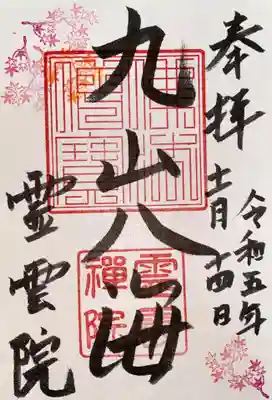 奉拝
令和五年
十一月十四日
九山八海
靈雲
禪院
霊雲院